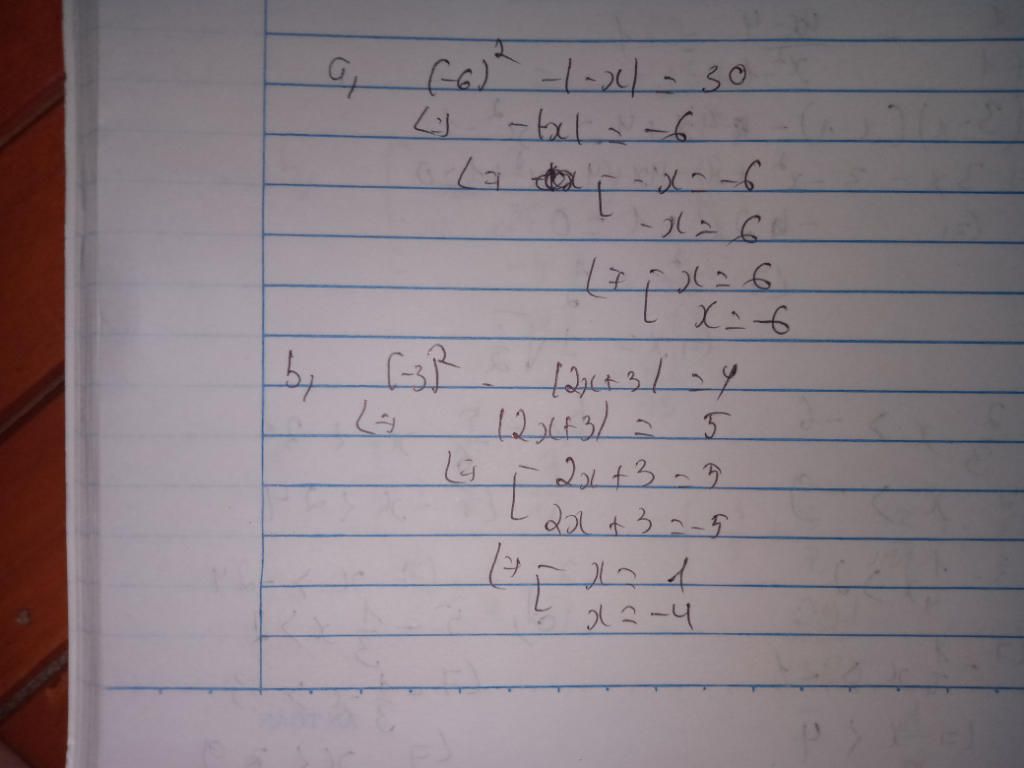 a, (-6)² - |-x| = 30
<=> -|x| = -6
<=> [ -x = -6
-x = 6
<=> [ x = 6
x = -6
b, (-3)² - |2x+3| = 4
<=> |2x+3| = 5
<=> [ 2x+3 = 5
2x+3 = -5
<=> [ x = 1
x = -4